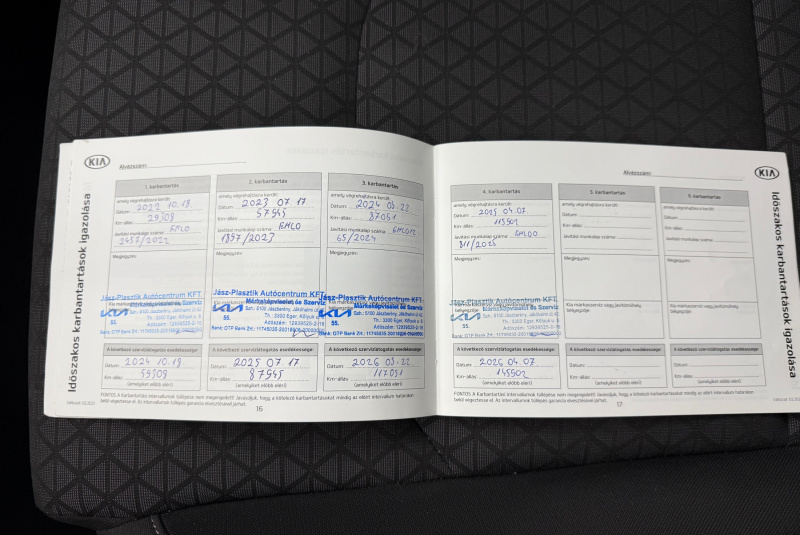 KIA
Alvázszám:
Időszakos karbantartások igazolása
1. karbantartás
amely végrehajtásra került:
Dátum: 2022.10.18
Km-állás: 29309
Javítási munkalap száma: GMLO
2457/2022
Megjegyzés:
Kia márkaszerviz
55.
A következő szervizlátogatás esedékessége:
Dátum: 2024 10.18
Km-állás: 59309
(amelyiket előbb eléri)
2. karbantartás
amely végrehajtásra került:
Dátum: 2023 07 17
Km-állás: 57545
Javítási munkalap száma: GMLO
1897/2023
Megjegyzés:
Jász-Plasztik Autócentrum KFT.
Márkaképviselet és Szerviz
KIA
Szh.: 5100 Jászberény, Jákóhalmi út 42
Th.: 3300 Eger, Kőlyuk u. 6.
Adószám: 12939525-2-16
55.
Bank: OTP Bank Zrt.
A következő szervizlátogatás esedékessége:
Dátum: 2025 07 17
Km-állás: 87545
(amelyiket előbb eléri)
3. karbantartás
amely végrehajtásra került:
Dátum: 2024 03.22
Km-állás: 87051
Javítási munkalap száma:
65/2024
Megjegyzés:
Jász-Plasztik Autócentrum KFT.
Márkaképviselet és Szerviz
KIA
Szh.: 5100 Jászberény, Jákóhalmi út 42
Th.: 3300 Eger, Kőlyuk u. 6.
Adószám: 12939525-2-16
55.
Bank: OTP Bank Zrt.
A következő szervizlátogatás esedékessége:
Dátum: 2026 03.22
Km-állás: 117051
(amelyiket előbb eléri)
FONTOS A Karbantartási intervallumok túllépése nem megengedett! Javasoljuk, hogy a kötelező karbantartásokat mindig az előírt intervallum határokon
belül végeztesse el. Az intervallumok túllépés garancia elvesztésével járhat.
16
Alvázszám:
KIA
Időszakos karbantartások igazolása
4. karbantartás
amely végrehajtásra került:
Dátum: 2025 04.07.
Km-állás: 115502
Javítási munkalap száma: GMLOO
811/2025
Megjegyzés:
Jász-Plasztik Autócentrum KFT.
Márkaképviselet és Szerviz
KIA
Szh.: 5100 Jászberény, Jákóhalmi út 42
Th.: 3300 Eger, Kőlyuk u. 6.
Adószám: 12939525-2-16
55.
Bank: OTP Bank Zrt.
A következő szervizlátogatás esedékessége:
Dátum: 2026 04.07
Km-állás: 145502
(amelyiket előbb eléri)
5. karbantartás
amely végrehajtásra került:
Dátum:
Km-állás:
Javítási munkalap száma:
Megjegyzés:
Kia márkaszerviz vagy javítóműhely
bélyegzője:
A következő szervizlátogatás esedékessége:
Dátum:
Km-állás:
(amelyiket előbb eléri)
6. karbantartás
amely végrehajtásra került:
Dátum:
Km-állás:
Javítási munkalap száma:
Megjegyzés:
Kia márkaszerviz vagy javítóműhely
bélyegzője:
A következő szervizlátogatás esedékessége:
Dátum:
Km-állás:
(amelyiket előbb eléri)
FONTOS A Karbantartási intervallumok túllépése nem megengedett! Javasoljuk, hogy a kötelező karbantartásokat mindig az előírt intervallum határokon
belül végeztesse el. Az intervallumok túllépés garancia elvesztésével járhat.
17